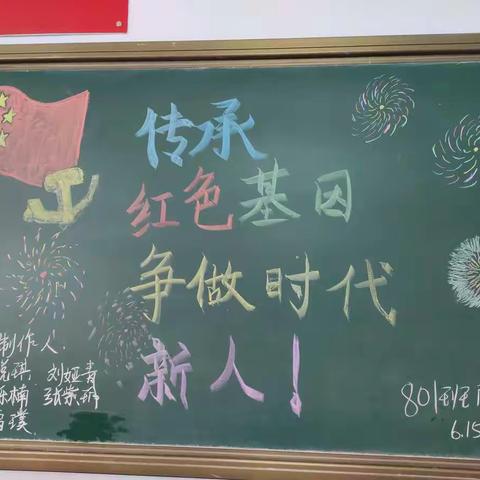 传承
红色基因
争做时代
新人！
制作人
琪 刘娅青
楠 张
璞
801班
6.15